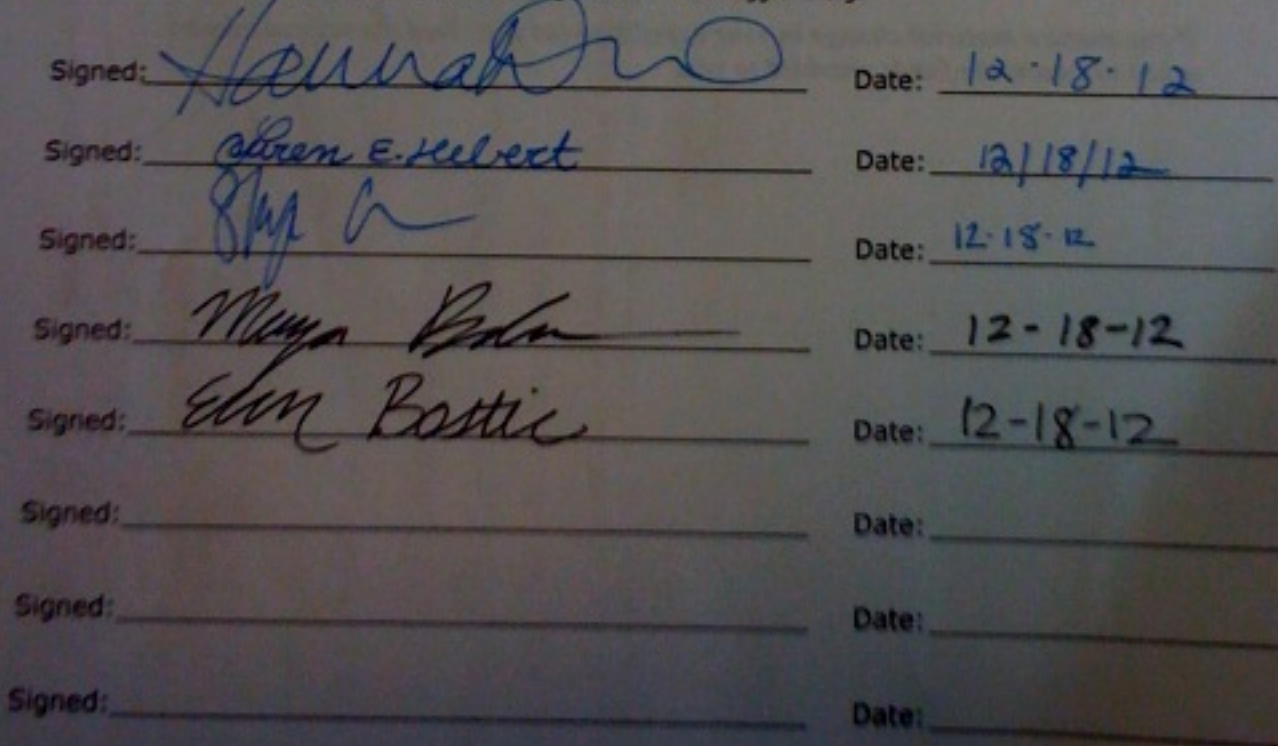 Signed: Hannah Date: 12·18·12
Signed: Karen E. Hebert Date: 12/18/12
Signed: Date: 12·18·12
Signed: Maya Date: 12-18-12
Signed: Bostic Date: 12-18-12
Signed: Date:
Signed: Date:
Signed: Date: